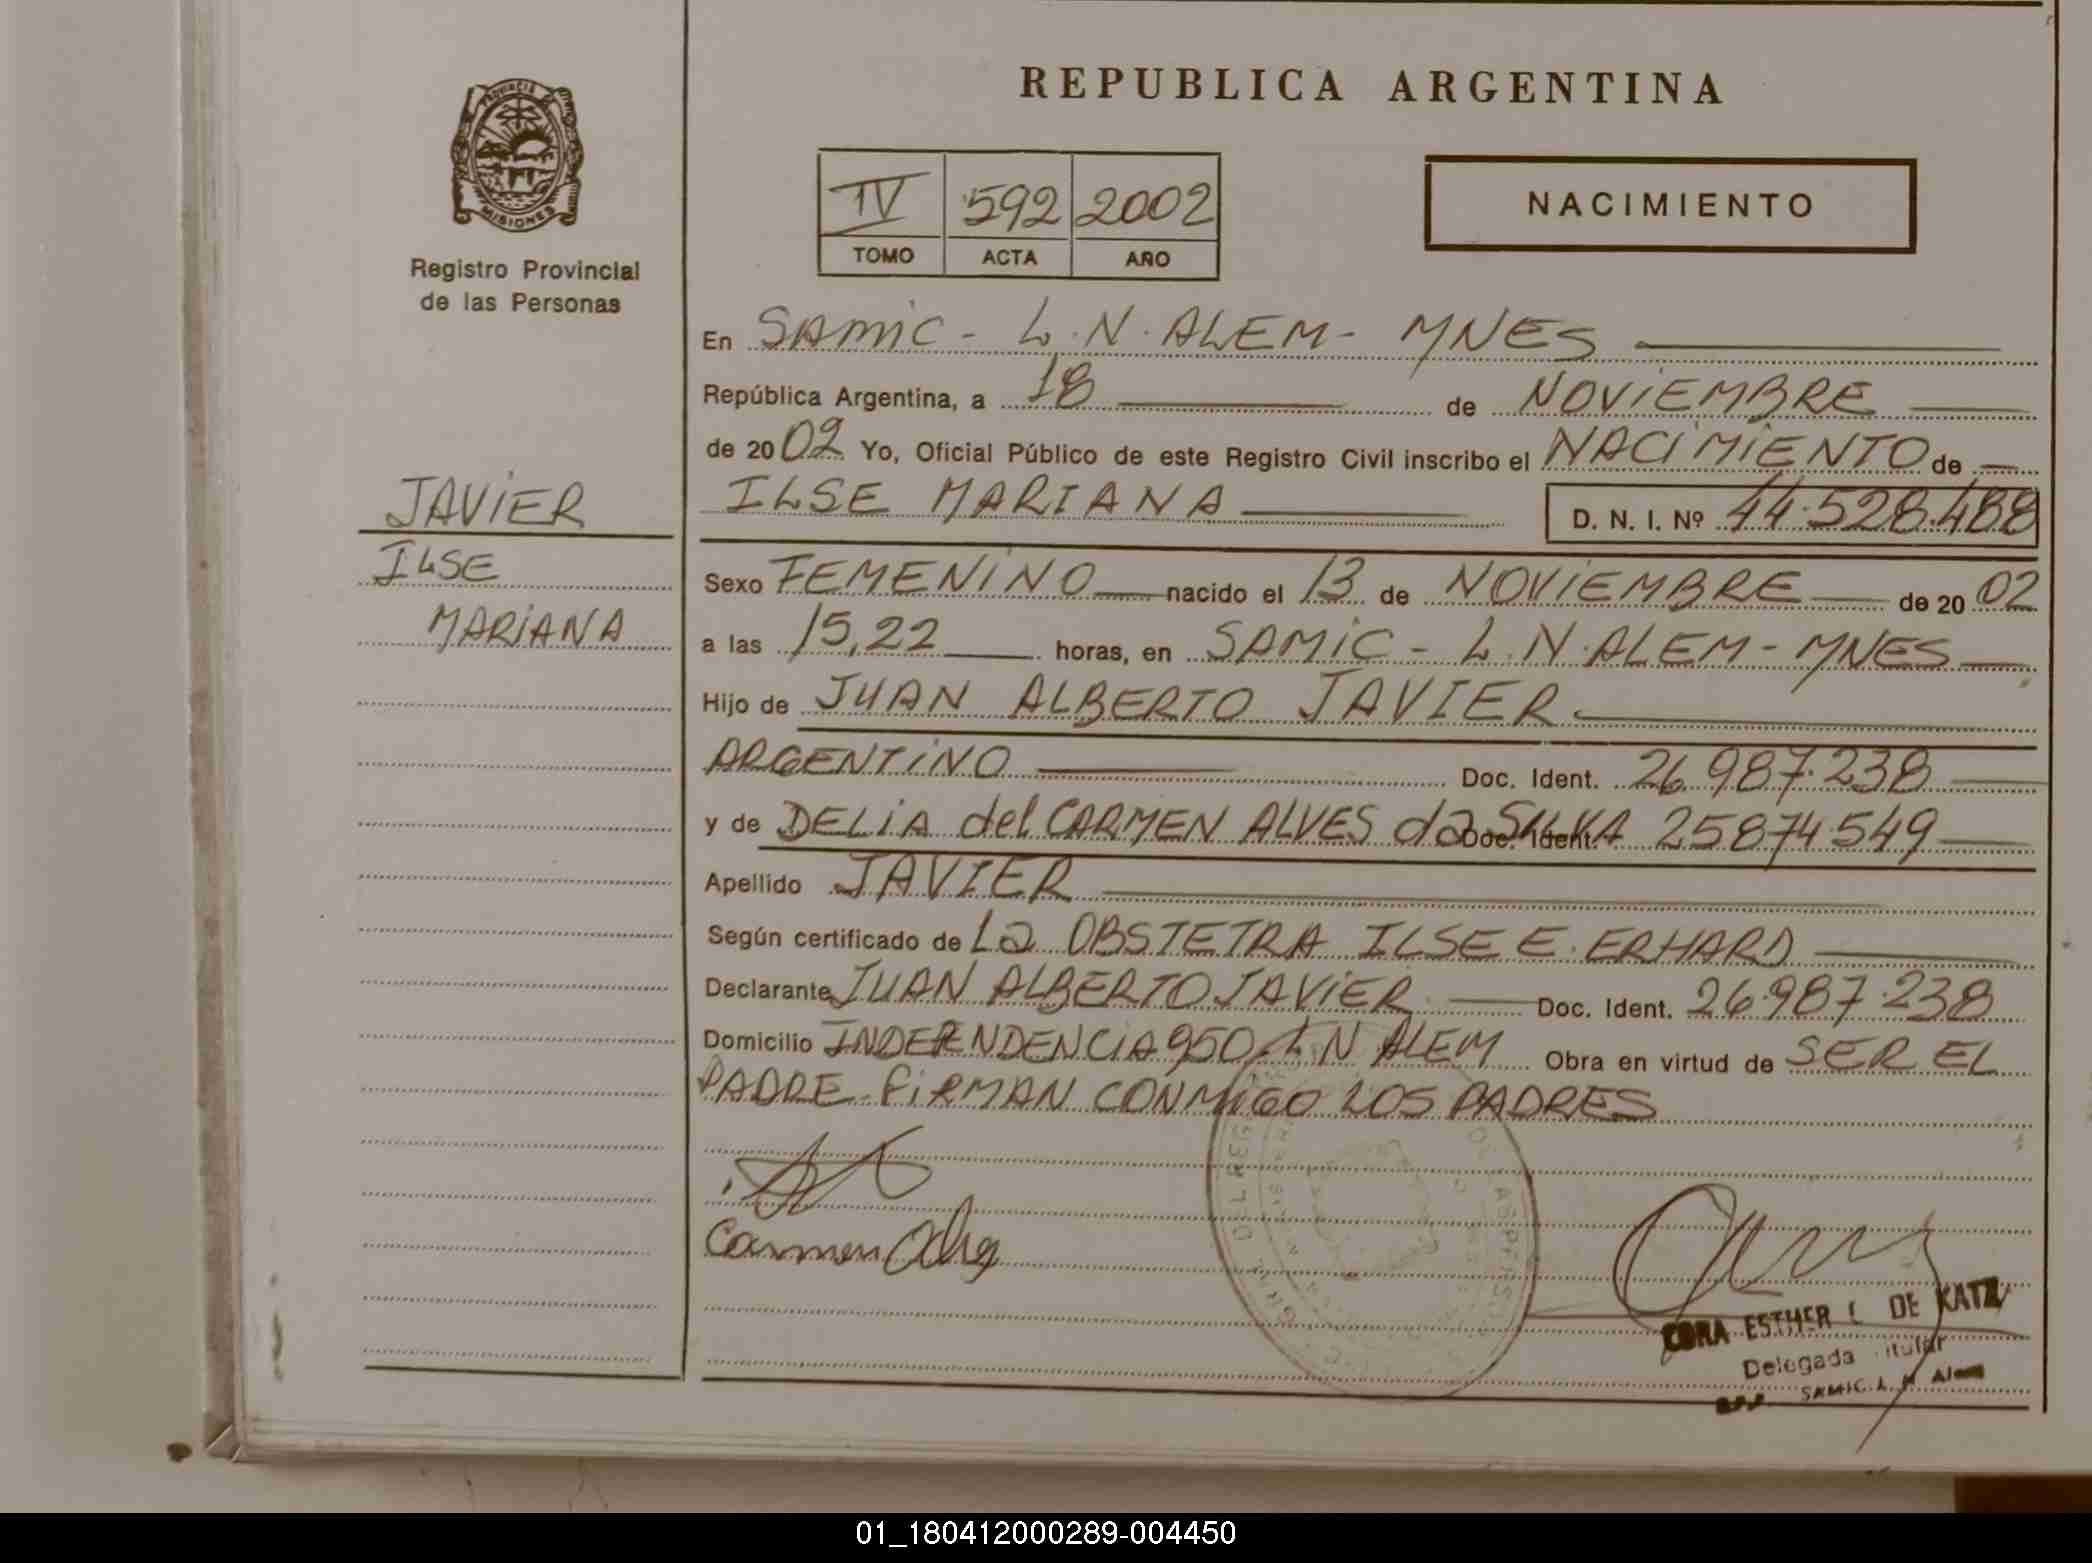 REPUBLICA ARGENTINA
PROVINCIA DE
MISIONES
Registro Provincial
de las Personas
IV 592 2002
TOMO ACTA AÑO
NACIMIENTO
En SAMIC - L.N. ALEM - MNES
República Argentina, a 18 de NOVIEMBRE
de 2002 Yo, Oficial Público de este Registro Civil inscribo el NACIMIENTO de
ILSE MARIANA D. N. I. Nº 44.528.488
JAVIER
ILSE
MARIANA
Sexo FEMENINO nacido el 13 de NOVIEMBRE de 2002
a las 15,22 horas, en SAMIC - L.N. ALEM - MNES
Hijo de JUAN ALBERTO JAVIER
ARGENTINO Doc. Ident. 26.987.238
y de DELIA del CARMEN ALVES da SILVA Doc. Ident. 25874.549
Apellido JAVIER
Según certificado de La OBSTETRA ILSE E. ERHARD
Declarante JUAN ALBERTO JAVIER Doc. Ident. 26.987.238
Domicilio INDEPENDENCIA 950, L N ALEM Obra en virtud de SER EL
PADRE. FIRMAN CONMIGO LOS PADRES
Carmen
ESTHER DE KATZ
Delegada
SAMIC. L. N. Alem
01_180412000289-004450